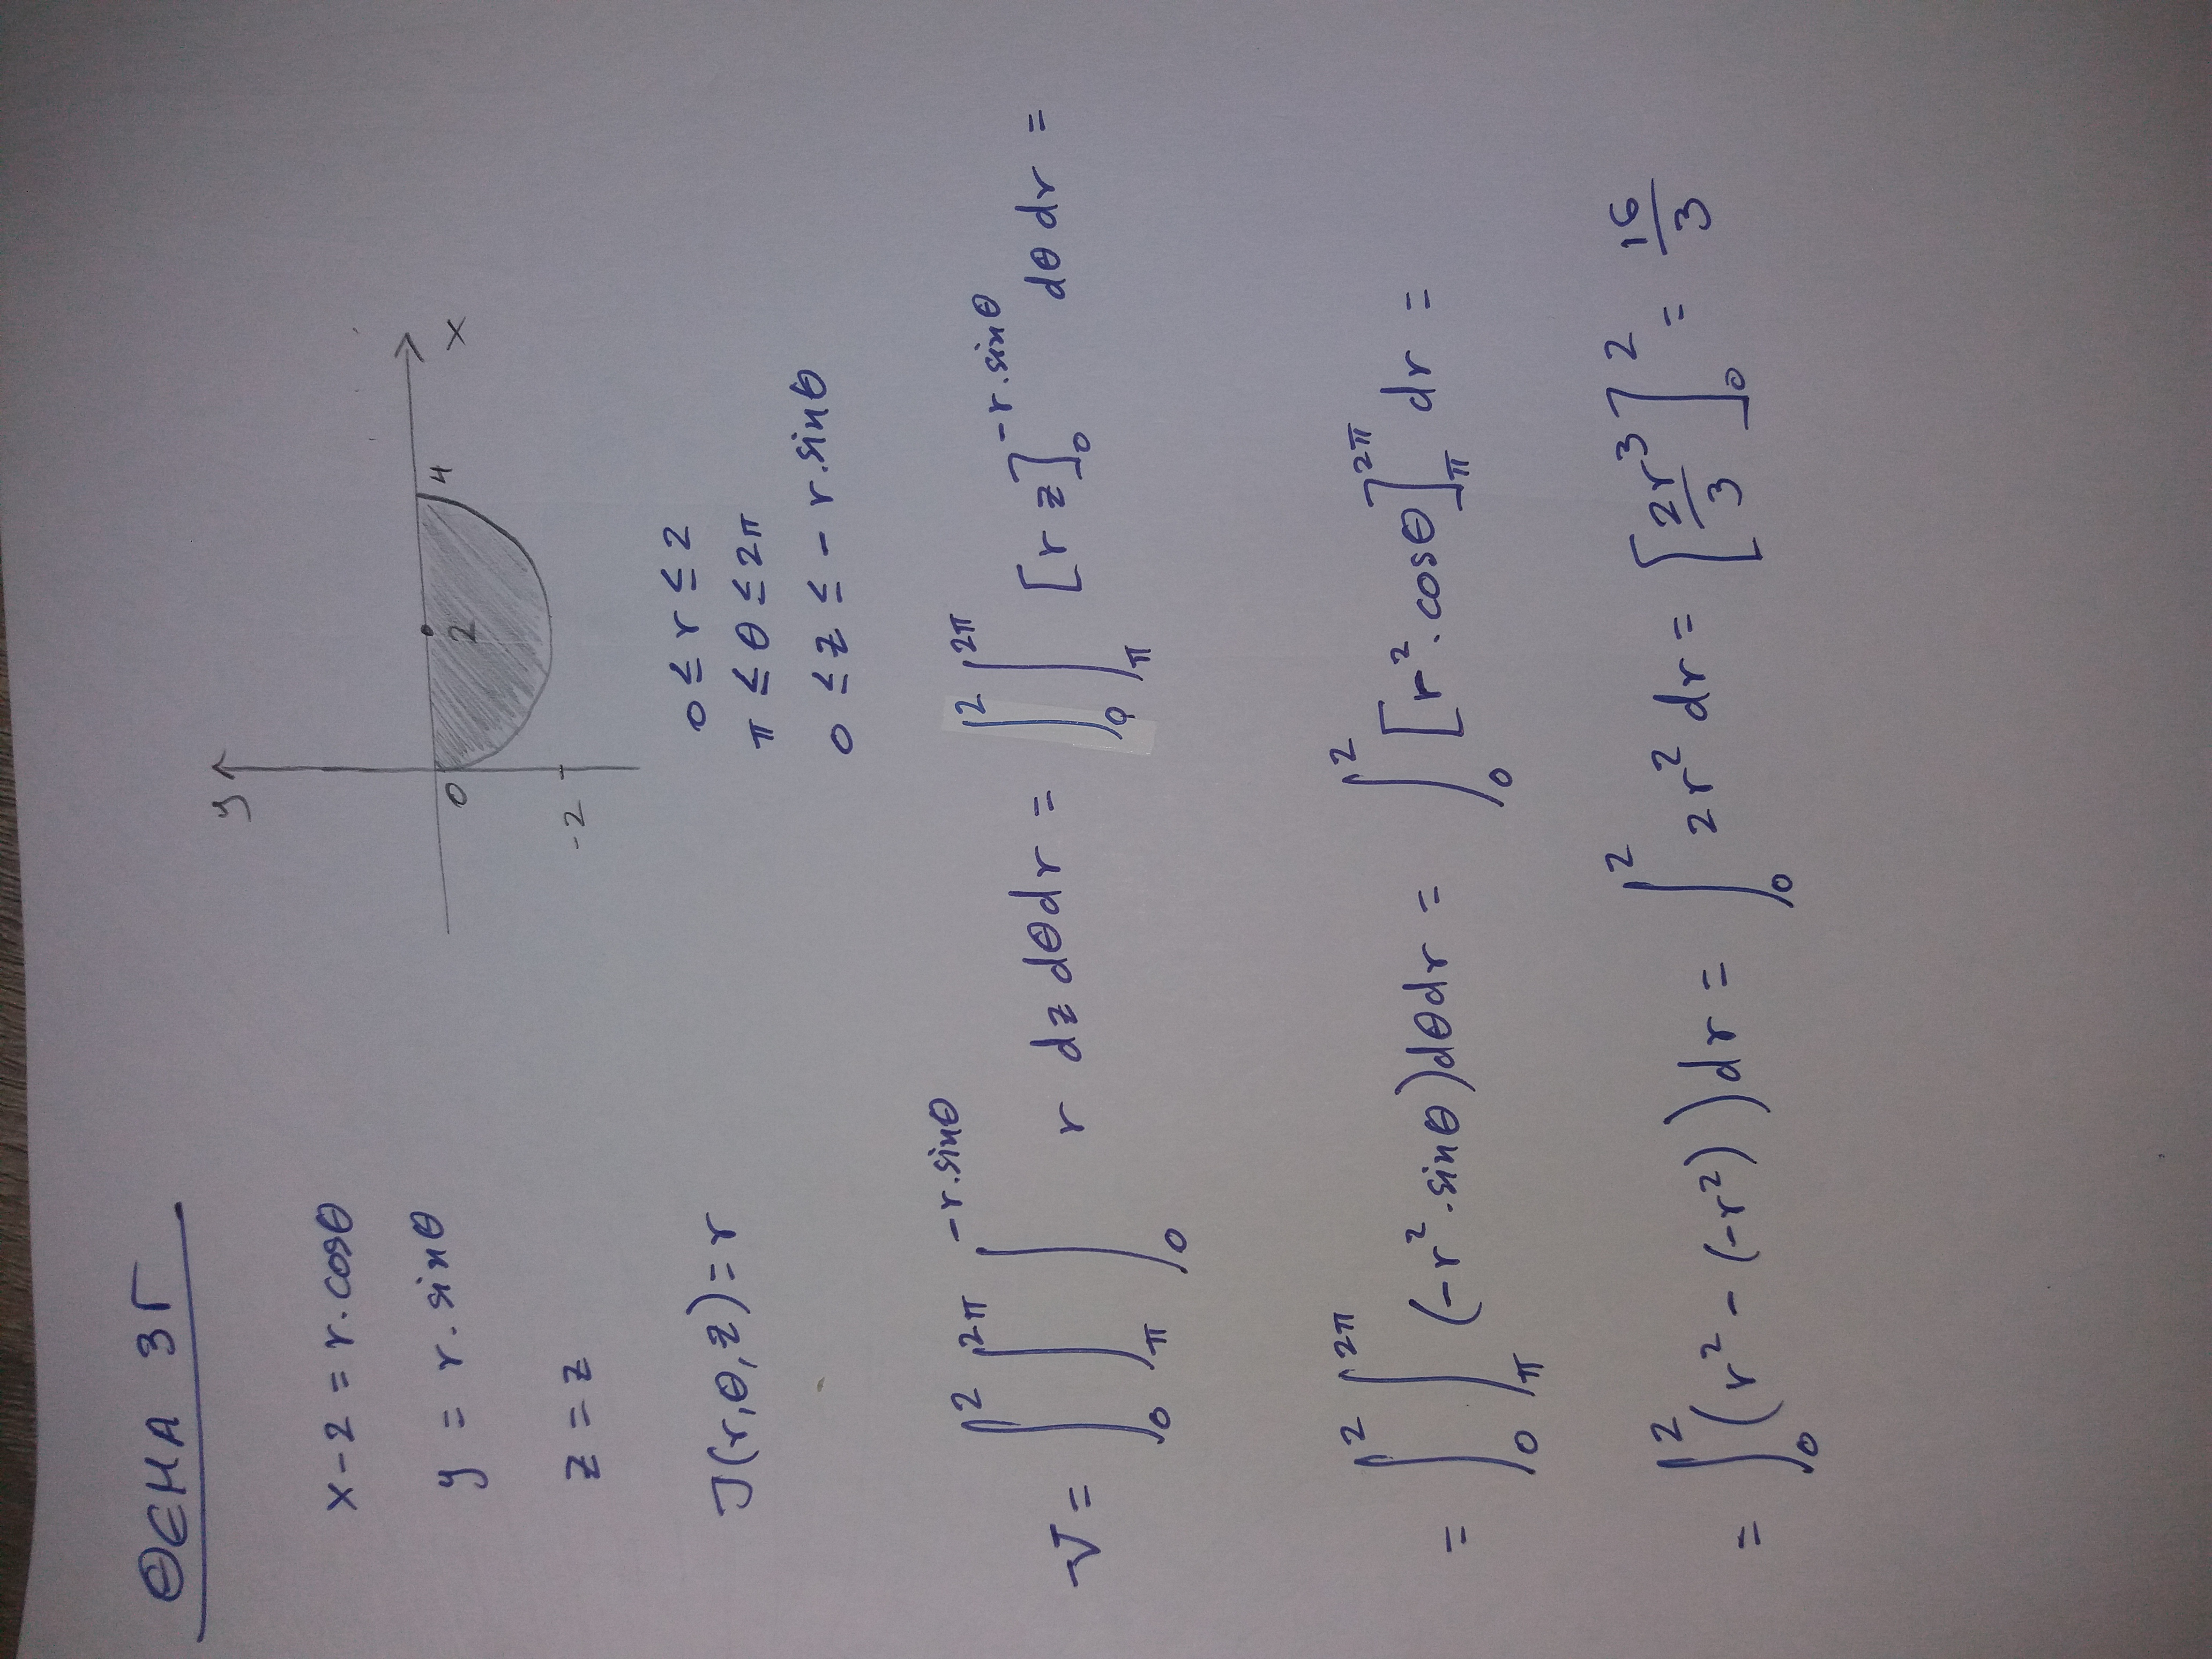 ΘΕΜΑ 3Γ
x-2 = r.cosθ
y = r.sinθ
z = z
J(r,θ,z) = r
y
x
0
2
4
-2
0 ≤ r ≤ 2
π ≤ θ ≤ 2π
0 ≤ z ≤ -r.sinθ
V = ∫₀² ∫_π^{2π} ∫₀^{-r.sinθ} r dz dθ dr = ∫₀² ∫_π^{2π} [r z]₀^{-r.sinθ} dθ dr =
= ∫₀² ∫_π^{2π} (-r².sinθ) dθ dr = ∫₀² [r².cosθ]_π^{2π} dr =
= ∫₀² (r² - (-r²)) dr = ∫₀² 2r² dr = [2r³/3]₀² = 16/3